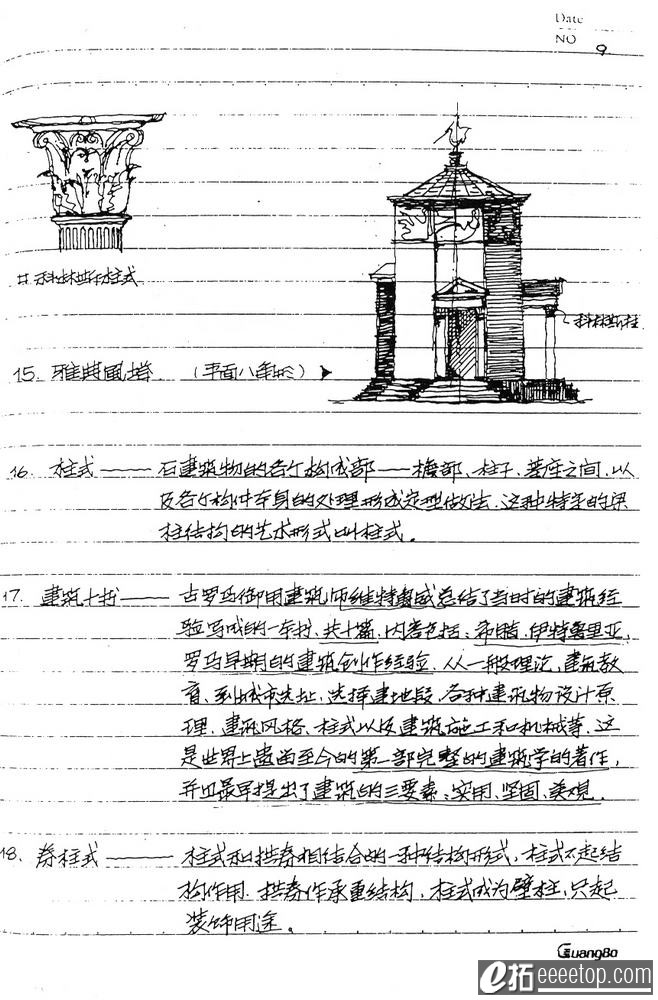 Date
NO 9
科林斯柱式
科林斯柱
15. 雅典风塔 (平面八角形)
16. 柱式 —— 石建筑物的各个构成部——檐部、柱子、基座之间,以
及各个构件本身的处理形成定型做法,这种特定的梁
柱结构的艺术形式叫柱式。
17. 建筑十书 —— 古罗马御用建筑师维特鲁威总结了当时的建筑经
验写成的一本书,共十篇,内容包括:希腊、伊特鲁里亚、
罗马早期的建筑创作经验,从一般理论,建筑教
育,到城市选址,选择建地段,各种建筑物设计原
理,建筑风格,柱式以及建筑施工和机械等,这
是世界上遗留至今的第一部完整的建筑学的著作,
并且最早提出了建筑的三要素:实用、坚固、美观.
18. 券柱式 —— 柱式和拱券相结合的一种结构形式,柱式不起结
构作用,拱券作承重结构,柱式成为壁柱,只起
装饰用途。
GuangBo
e拓 eeeetop.com